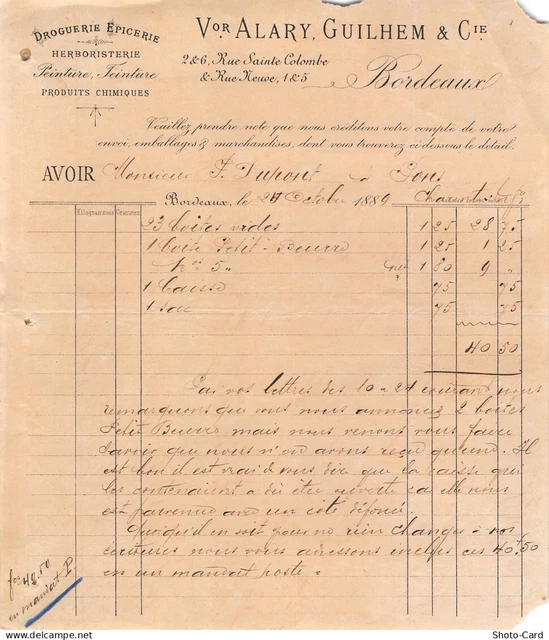 DROGUERIE EPICERIE
HERBORISTERIE
Peinture, Teinture
PRODUITS CHIMIQUES
Vor ALARY, GUILHEM & CIE
2&6, Rue Sainte Colombe
& Rue Neuve, 1&5
Bordeaux
Veuillez prendre note que nous créditons votre compte de votre
envoi, emballages & marchandises, dont vous trouverez ci-dessous le détail.
AVOIR Monsieur F. Dupont à Pons
Bordeaux, le 24 Octobre 1889
Kilogrammes Grammes
23 boîtes vides 1 25 28 75
1 boîte Petit-Beurre 1 25 1 25
5 1 80 9 "
1 Caisse 75 75
1 sac 75 75
40 50
Par vos lettres des 10 & 21 courant vous
remarquons que vous nous annoncez 2 boîtes
Petit Beurre mais nous venons vous faire
savoir que nous n'en avons reçu qu'une. Il
est bon il est vrai de vous dire que la caisse qui
les contenaient a dû être ouverte car elle nous
est parvenue avec un côté défoncé.
Quoiqu'il en soit pour ne rien changer à vos
écritures nous vous adressons inclus ces 40f.50
en un mandat poste.
frs 40.50
en mandat P.
www.Photo-Card.com
© Photo-Card